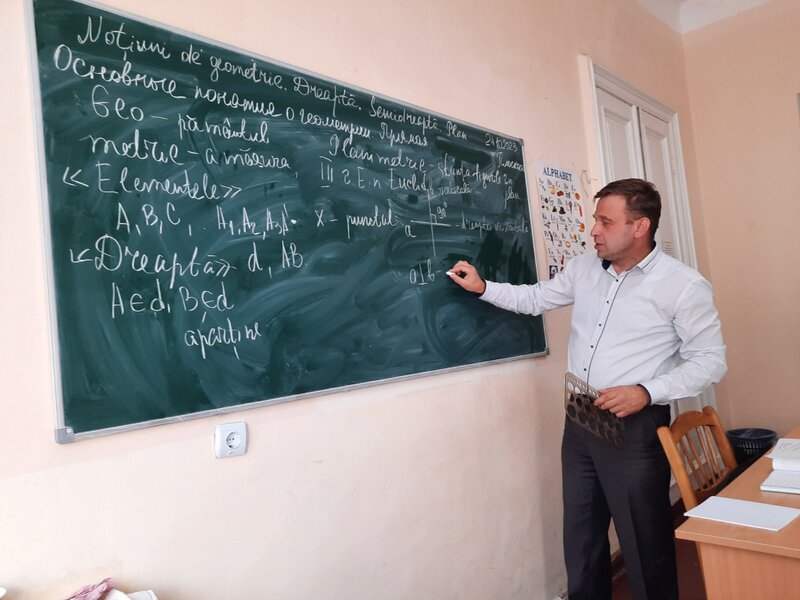 Noțiuni de geometrie. Dreaptă. Semidreaptă. Plan
24.10.2023
Основные понятия о геометрии. Прямая
Плоскость
Geo – pământul
metrie – a măsura
Planimetrie –
III î. E. n Euclid
« Elementele »
A, B, C, A1, A2, A3, A x – punctul
a 90°
« Dreaptă » d, AB
a ⊥ b
A ∈ d, B ∈ d
aparține
ALPHABET